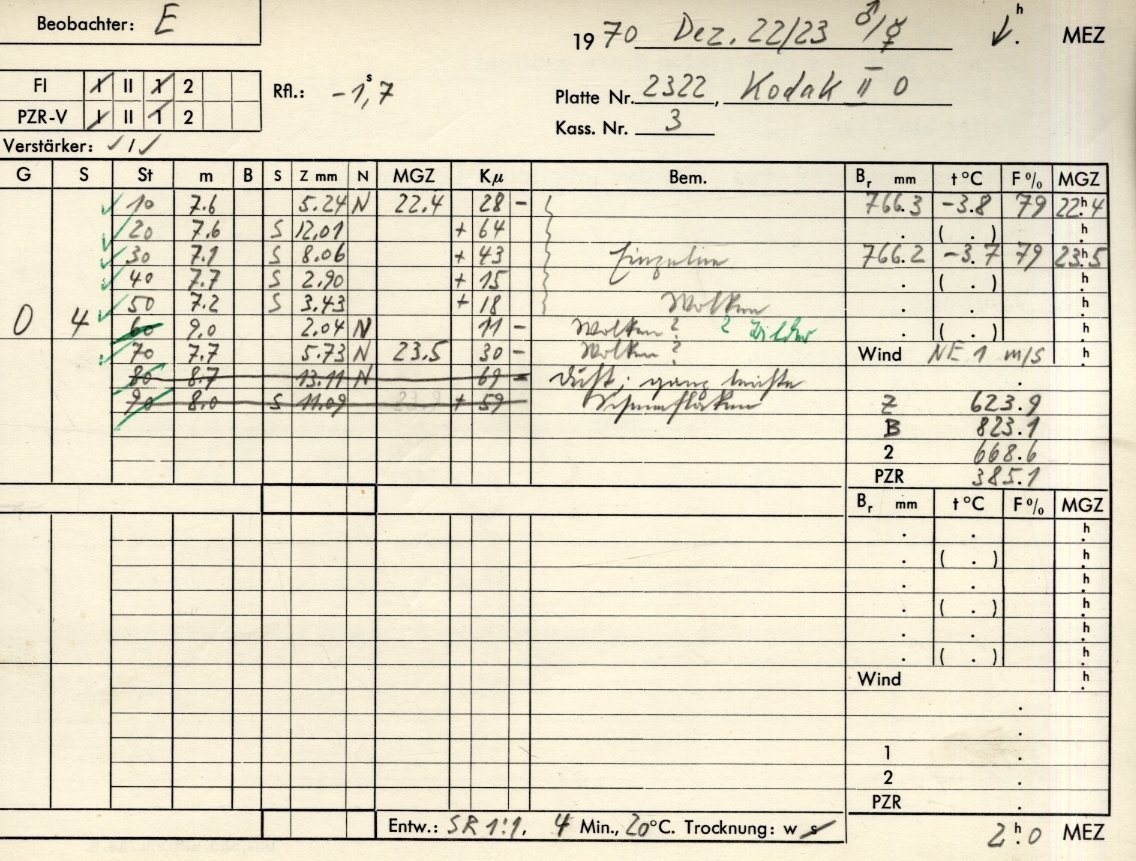 Beobachter: E
1970 Dez. 22/23 ♂/☿ h . MEZ
FI I II 1 2
PZR-V I II 1 2
Rfl.: -1ˢ,7
Platte Nr. 2322, Kodak II 0
Kass. Nr. 3
Verstärker: ✓/✓
G S St m B S Z mm N MGZ Kμ Bem. Bᵣ mm t °C F % MGZ
10 7.6 5.24 N 22.4 28 - 766.3 -3.8 79 22ʰ.4
20 7.6 S 12.01 + 64 . ( . ) h.
30 7.1 S 8.06 + 43 766.2 -3.7 79 23ʰ.5
40 7.7 S 2.90 + 15 . ( . ) h.
0 4 50 7.2 S 3.43 + 18 Wolken . . h.
60 9.0 2.04 N 11 - Wolken? 2 Bilder . ( . ) h.
70 7.7 5.73 N 23.5 30 - Wolken? Wind NE 1 m/s h.
80 8.7 13.11 N 69 - Duft; ganz leichte .
90 8.0 S 11.09 23.9 + 59 Z 623.9
B 823.1
2 668.6
PZR 385.1
Bᵣ mm t °C F % MGZ
. . h.
. ( . ) h.
. . h.
. ( . ) h.
. . h.
. ( . ) h.
Wind h.
.
.
1 .
2 .
PZR .
Entw.: SR 1:1. 4 Min., 20°C. Trocknung: w s 2ʰ.0 MEZ